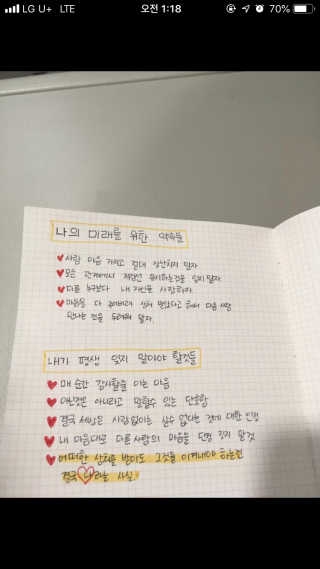 LG U+ LTE 오전 1:18 70%
나의 미래를 위한 약속들
사람 마음 가지고 절대 장난치지 말자.
모든 관계에서 적정선 유지하는것을 잊지 말자.
다른 누구보다 내 자신을 사랑하자.
마음을 다 줘버려서 상처 받았다고 해서 다음 사람
만나는 것을 두려워 말자.
내가 평생 잊지 말아야 할것들
매 순간 감사함을 아는 마음
아닌것은 아니라고 말할수 있는 단호함
결국 세상은 사람없이는 살수 없다는 것에 대한 인정
내 마음대로 다른사람의 마음을 단정 짓지 말것
어떠한 상처를 받아도 그것을 이겨내야 하는건
결국 나라는 사실.